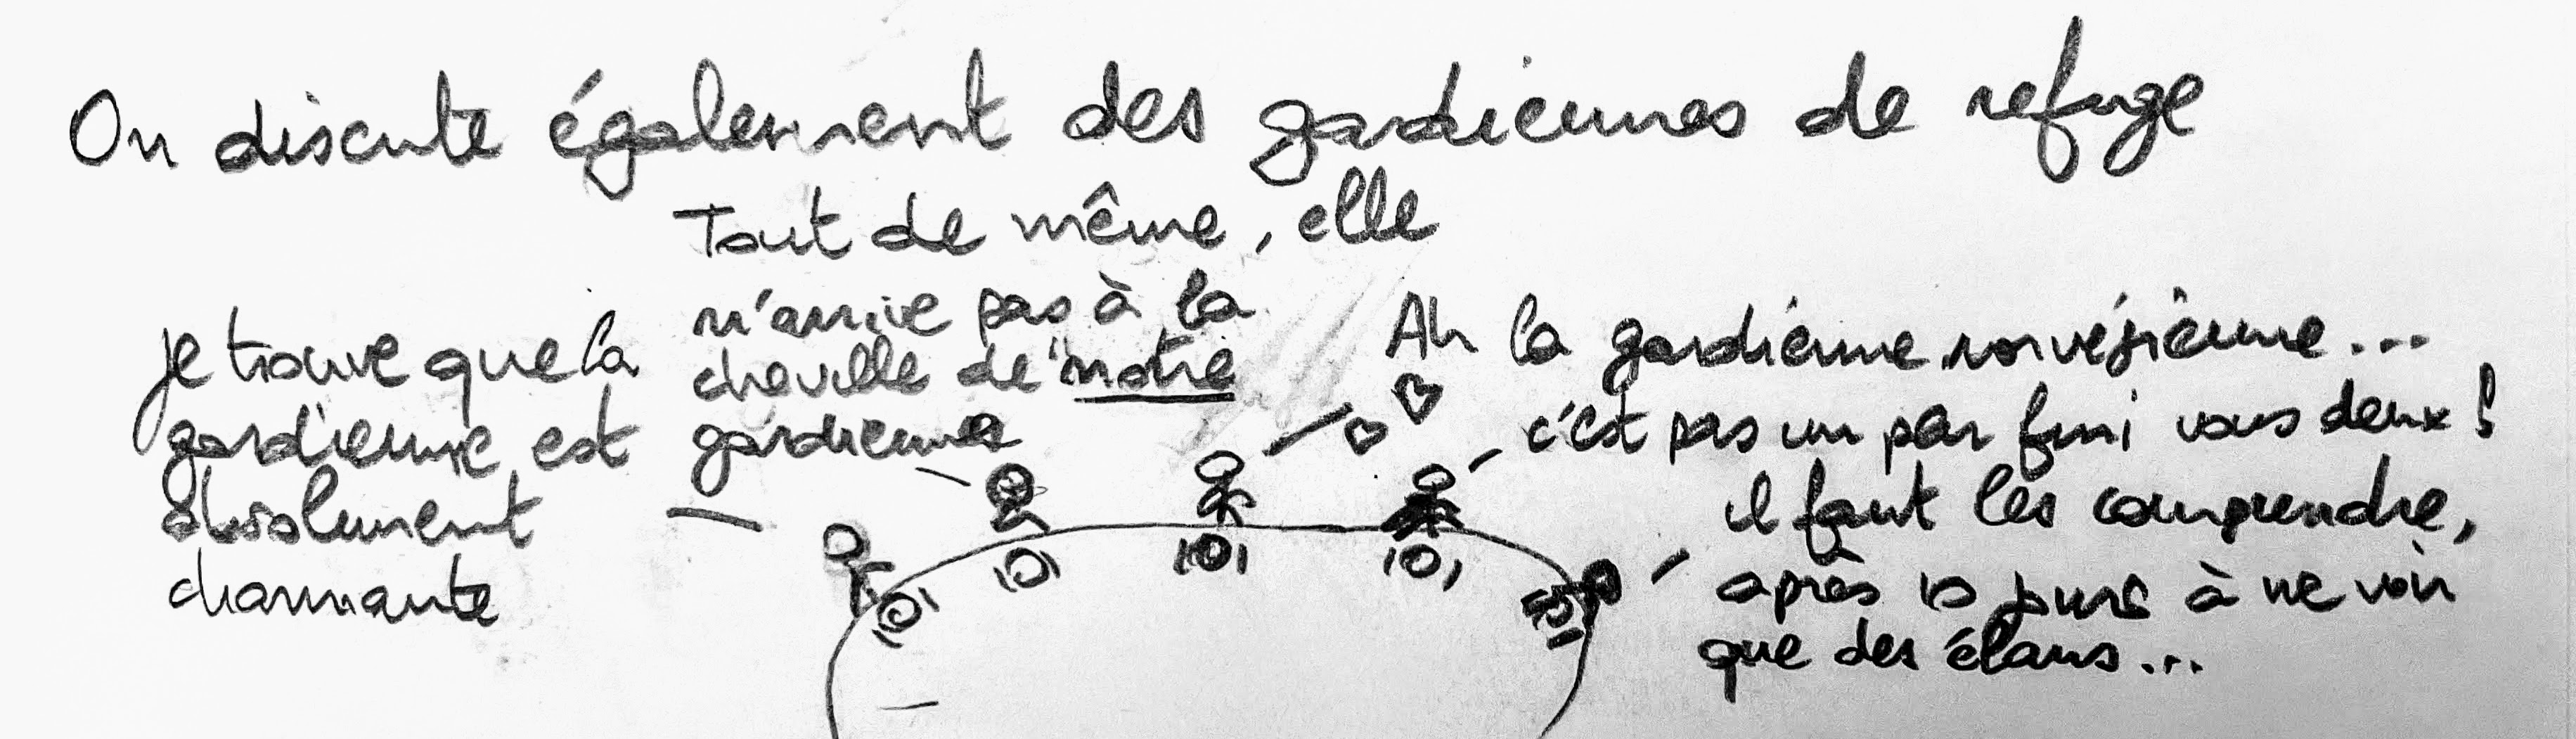 On discute également des gardiennes de refuge
je trouve que la
gardienne est
absolument
charmante
Tout de même, elle
n'arrive pas à la
cheville de "notre
gardienne
Ah la gardienne norvégienne...
c'est pas un peu fini vous deux !
il faut les comprendre,
après 10 jours à ne voir
que des élans...